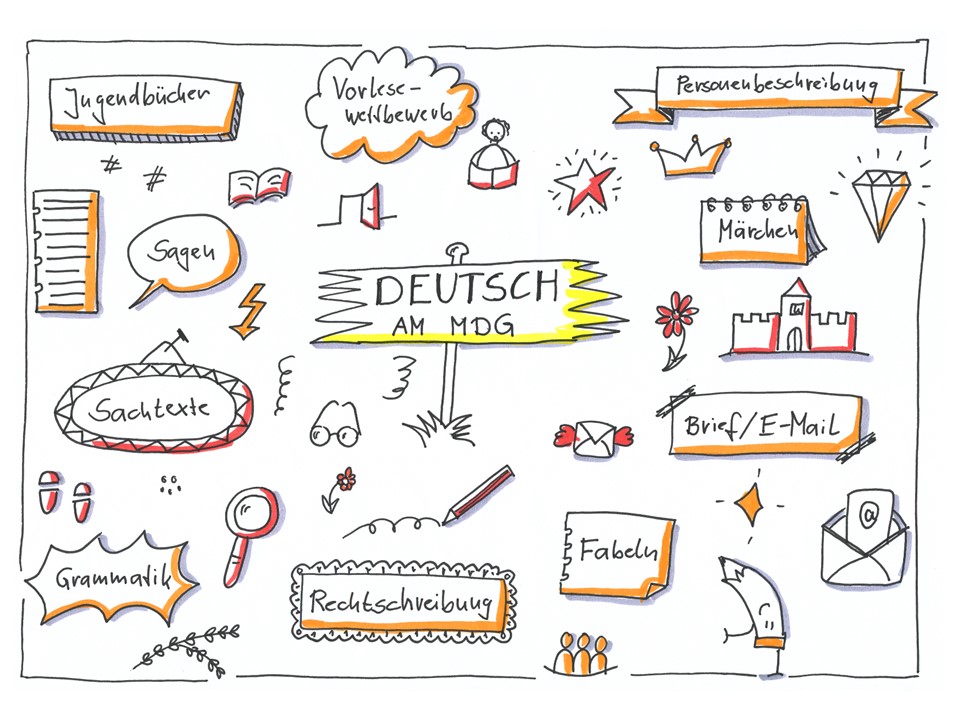 Jugendbücher
Vorlese-
wettbewerb
Personenbeschreibung
# #
Sagen
Märchen
DEUTSCH
AM MDG
Sachtexte
Brief/E-Mail
@
Grammatik
Rechtschreibung
Fabeln